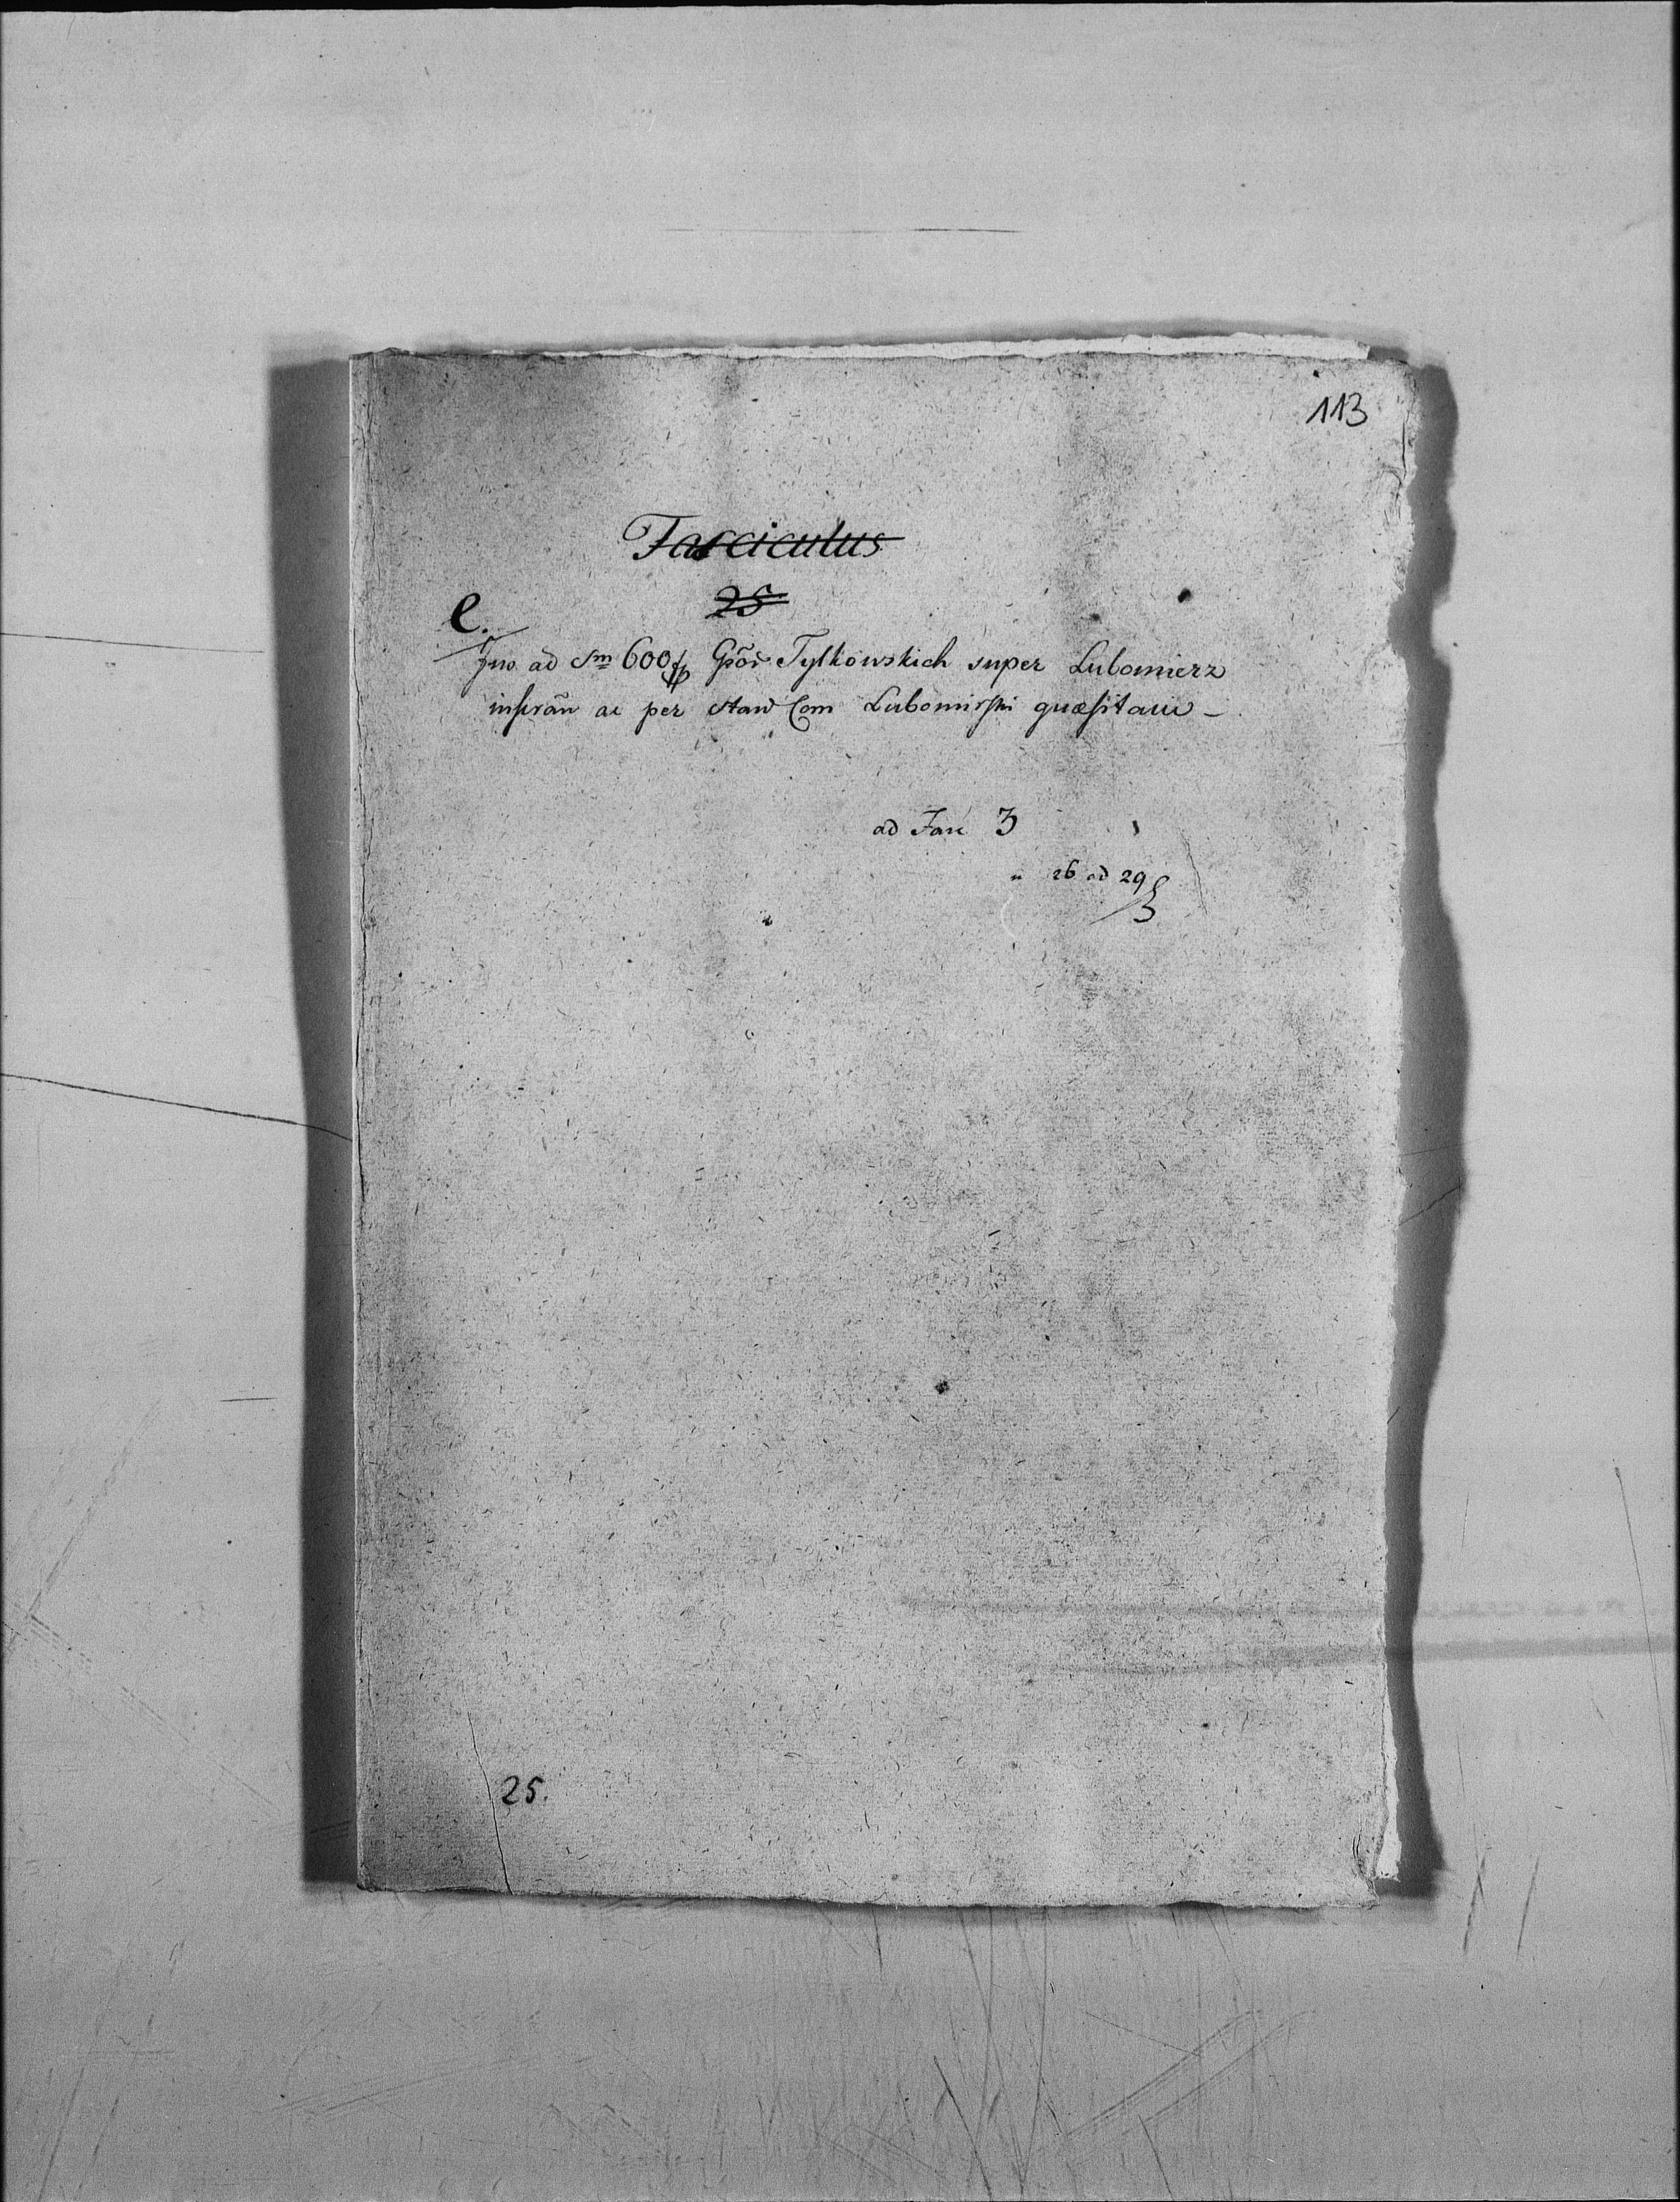 113
Fasciculus
25
e.
quo ad Sm 600 fl Gsõr Tylkowskich super Lubomierz
inscrãn ac per Stan Com Lubomirski quæsitam –
ad Fasc 3
" 26 ad 29
25.